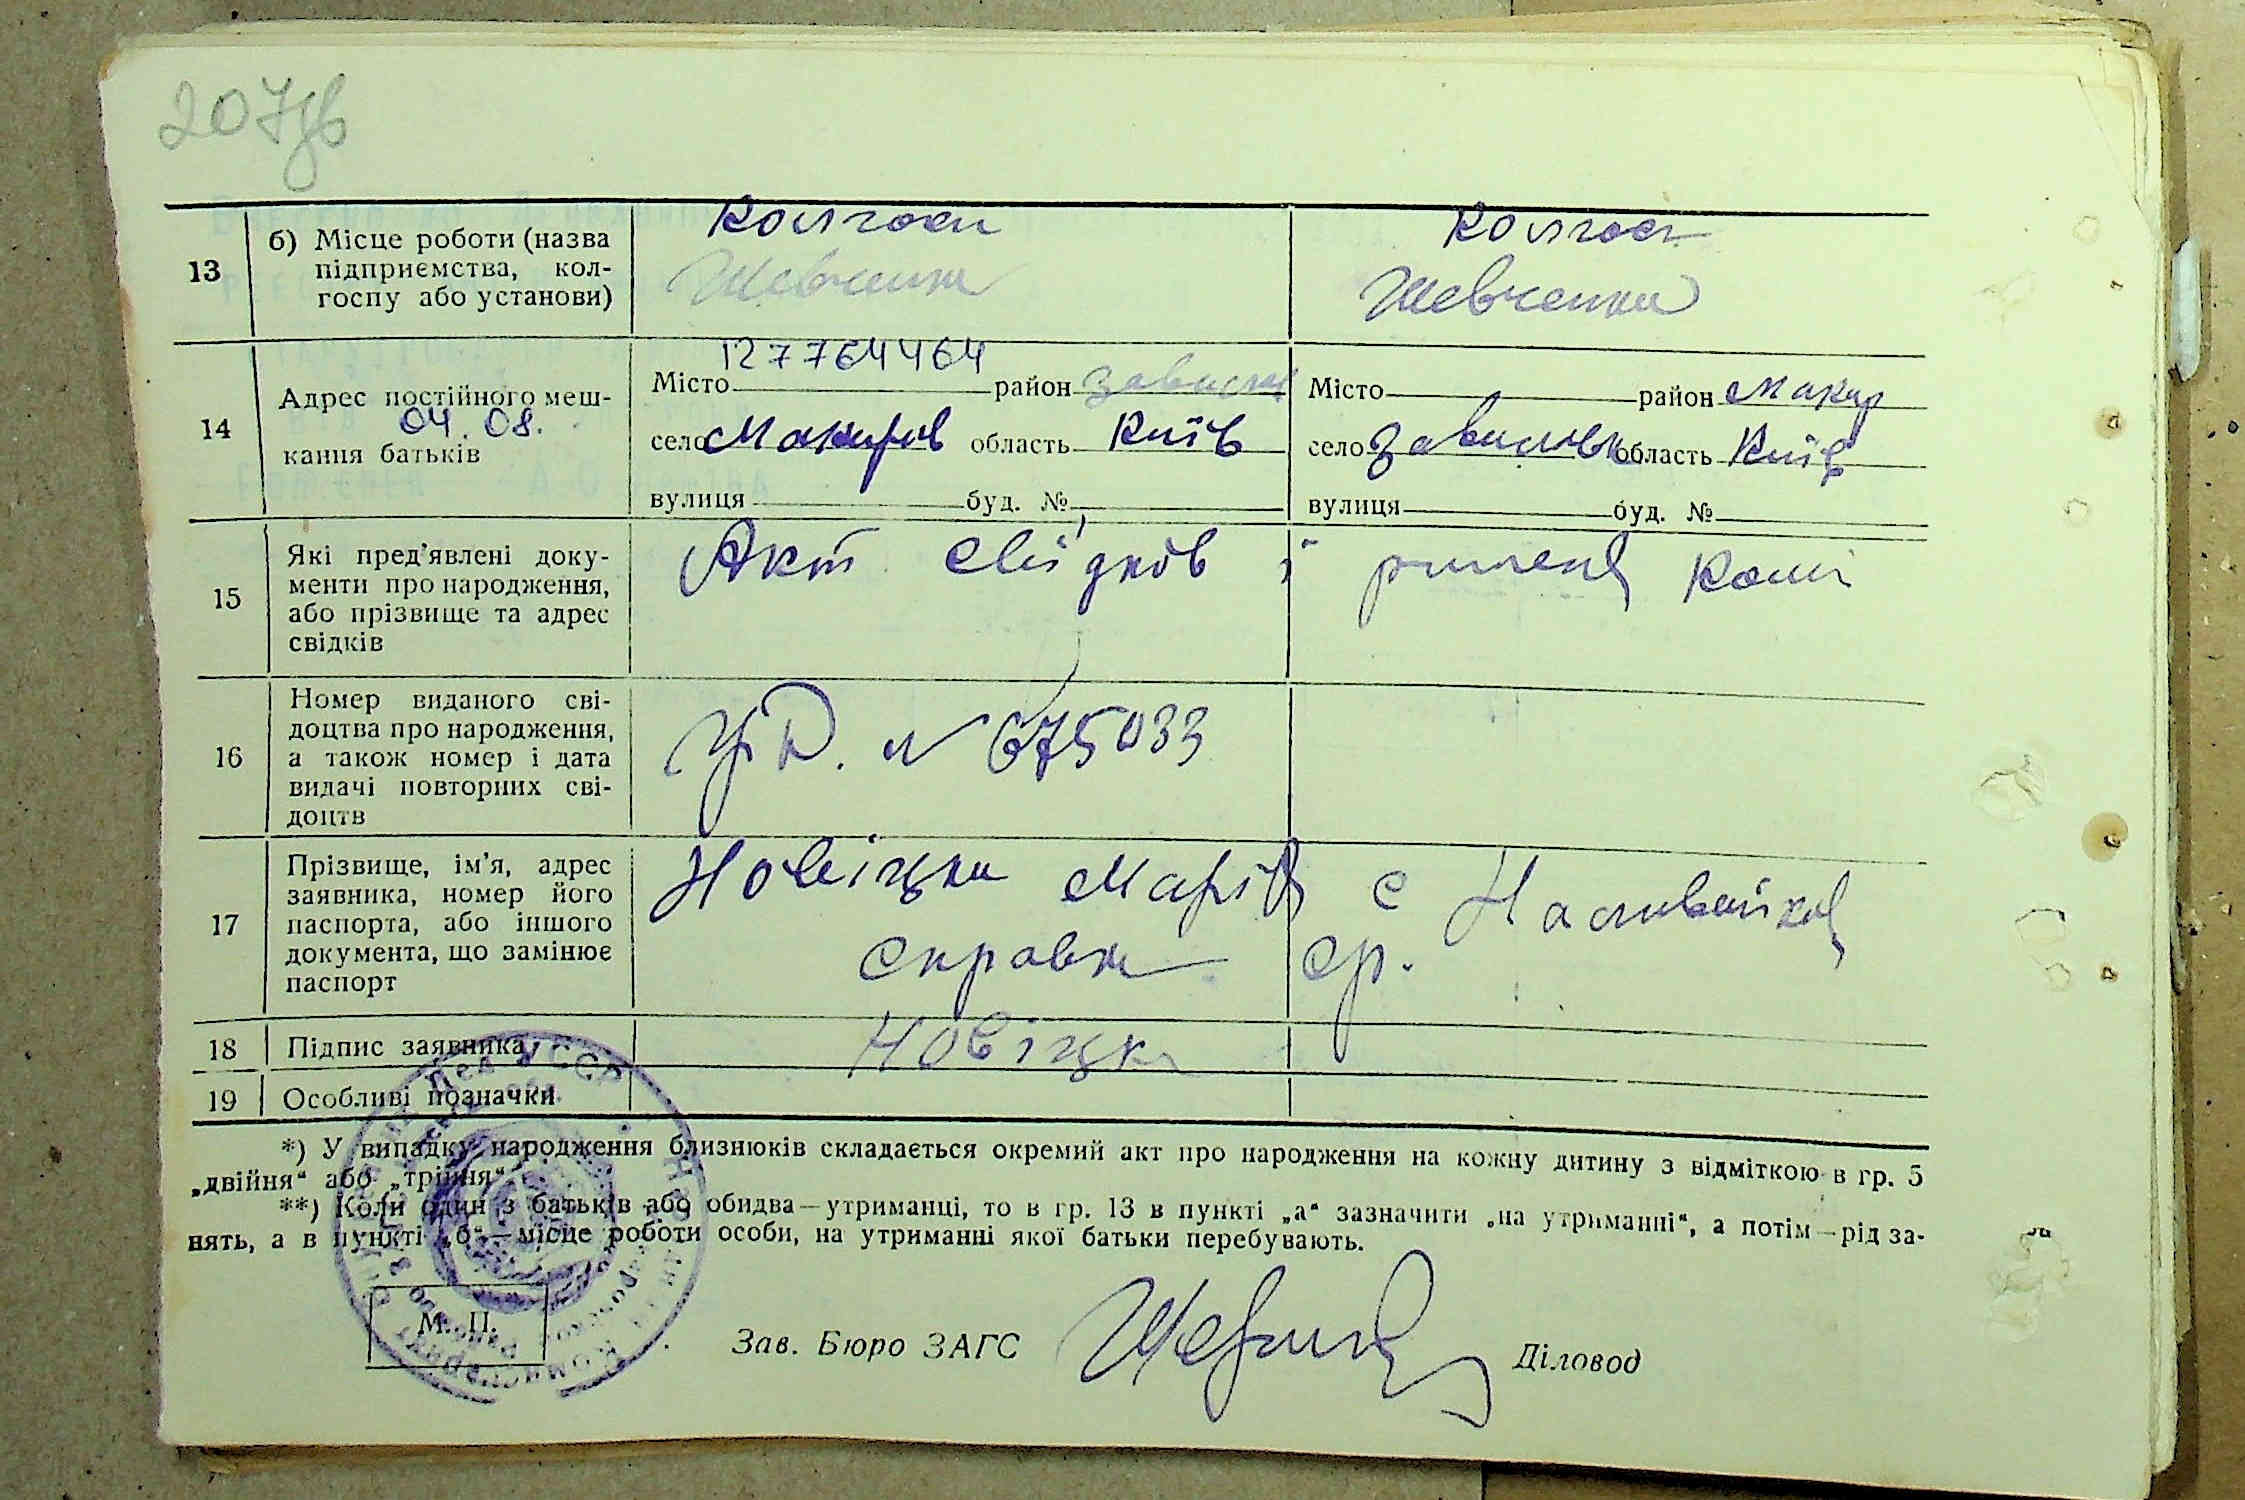 207зв
13
б) Місце роботи (назва
підприємства, кол-
госпу або установи)
Колгосп
Шевченка
Колгосп
Шевченка
14
Адрес постійного меш-
04.08.
кання батьків
127764464
Місто район
село Макарів область Київ
вулиця буд. №
Місто район Макар
село область Київ
вулиця буд. №
15
Які пред’явлені доку-
менти про народження,
або прізвище та адрес
свідків
Акт свідків і комі
16
Номер виданого сві-
доцтва про народження,
а також номер і дата
видачі повторних сві-
доцтв
№ 675033
17
Прізвище, ім’я, адрес
заявника, номер його
паспорта, або іншого
документа, що замінює
паспорт
Новіцка Марія с
справка ср.
18
Підпис заявника
Новіцка
19
Особливі позначки
*) У випадку народження близнюків складається окремий акт про народження на кожну дитину з відміткою в гр. 5
„двійня“ або „трійня“.
**) Коли один з батьків або обидва—утриманці, то в гр. 13 в пункті „а“ зазначити „на утриманні“, а потім—рід за-
нять, а в пункті „б“—місце роботи особи, на утриманні якої батьки перебувають.
М. П.
Зав. Бюро ЗАГС
Діловод